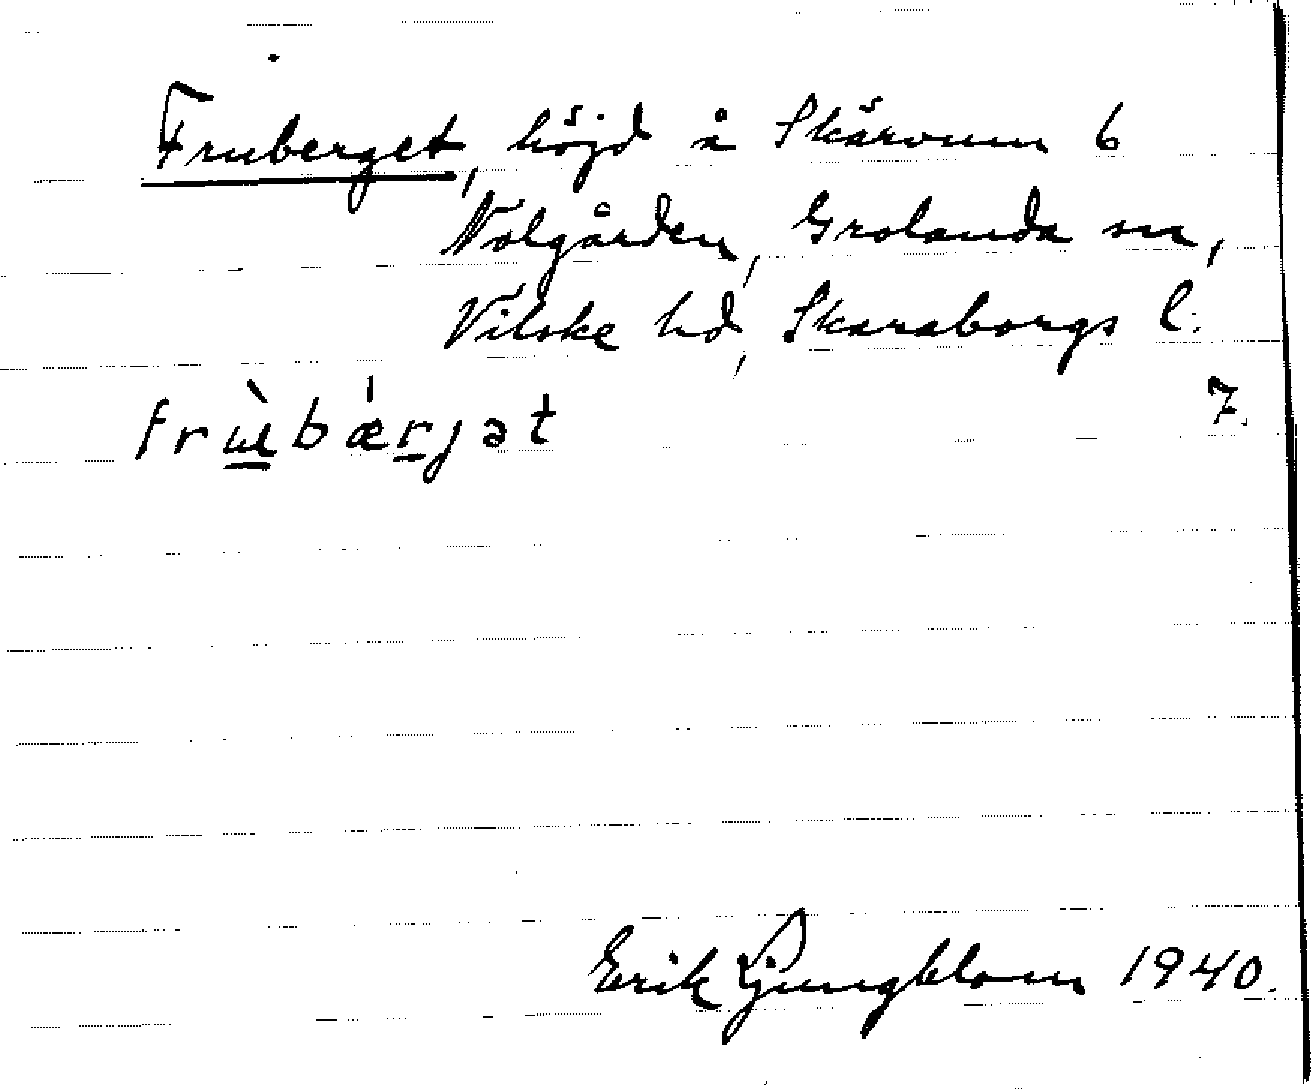 Fruberget, höjd å Skärvum 6
Nolgården, Grolanda sn,
Vilske hd, Skaraborgs l.
7.
frùbǽrjət
Erik Ljungblom 1940.